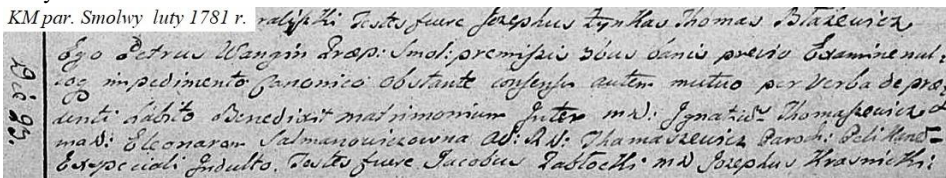 KM par. Smolwy luty 1781 r.
Testes fuere Josephus Zynkas Thomas Błażewicz
Die 23.
Ego Petrus Wangin Præp: Smol: premissis 3bus bānis previo Examine nul:
impedimento Canonico obstante consensu autem mutuo per verba de præ
senti habito Benedixit matrimonium Inter md: Ignatiū Thomaszewicz &
md: Eleonoram Salmanowiczowna ad: Rd: Thamaszewicz Paroch:
Ex speciali Indulto. Testes fuere Jacobus Zabłocki md Josephus Krasnicki: